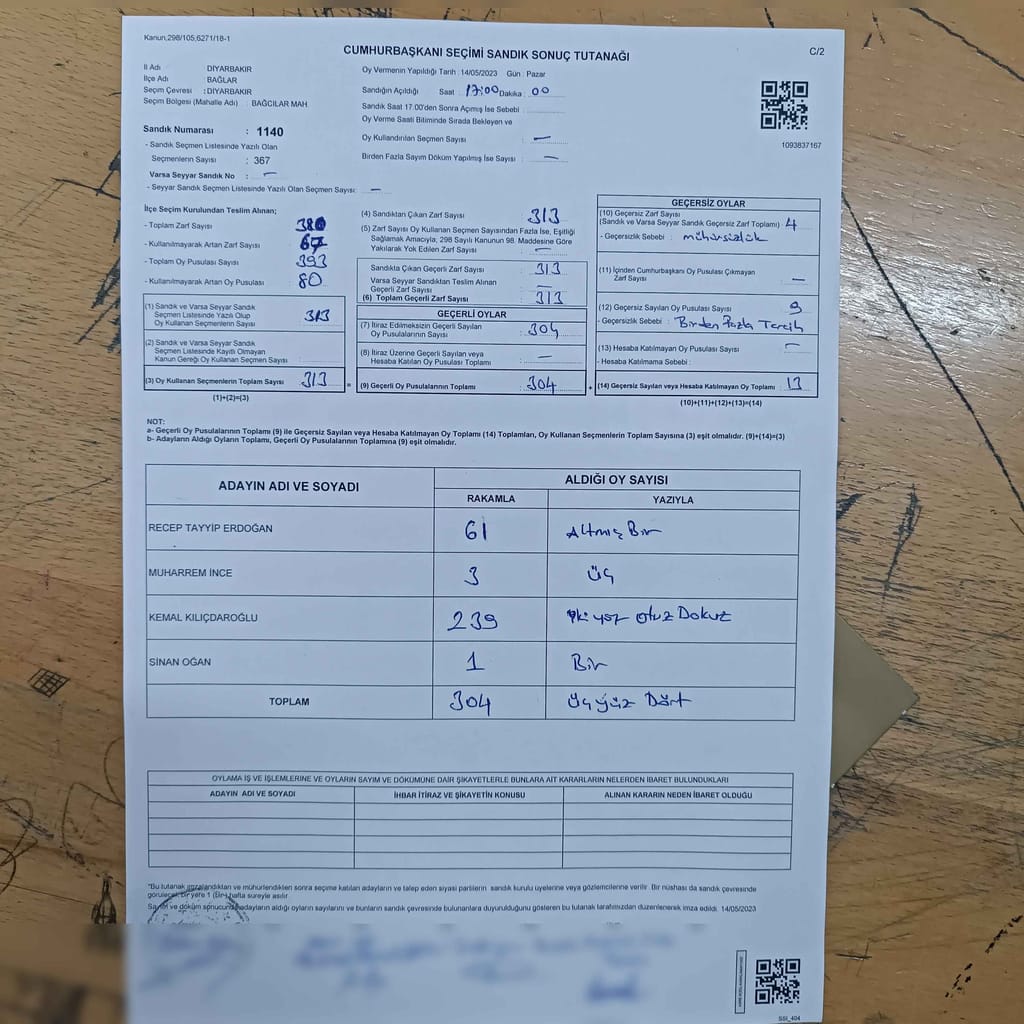 Kanun,298/105;6271/18-1
CUMHURBAŞKANI SEÇİMİ SANDIK SONUÇ TUTANAĞI
C/2
İl Adı DİYARBAKIR
İlçe Adı BAĞLAR
Seçim Çevresi : DİYARBAKIR
Seçim Bölgesi (Mahalle Adı) : BAĞCILAR MAH
Sandık Numarası : 1140
- Sandık Seçmen Listesinde Yazılı Olan
Seçmenlerin Sayısı : 367
Varsa Seyyar Sandık No : —
- Seyyar Sandık Seçmen Listesinde Yazılı Olan Seçmen Sayısı: —
Oy Vermenin Yapıldığı Tarih : 14/05/2023 Gün : Pazar
Sandığın Açıldığı Saat : 17:00 Dakika : 00
Sandık Saat 17.00'den Sonra Açımış İse Sebebi :
Oy Verme Saati Bitiminde Sırada Bekleyen ve
Oy Kullandırılan Seçmen Sayısı : —
Birden Fazla Sayım Döküm Yapılmış İse Sayısı : —
1093837167
İlçe Seçim Kurulundan Teslim Alınan;
- Toplam Zarf Sayısı : 380
- Kullanılmayarak Artan Zarf Sayısı : 67
- Toplam Oy Pusulası Sayısı : 393
- Kullanılmayarak Artan Oy Pusulası : 80
(1) Sandık ve Varsa Seyyar Sandık
Seçmen Listesinde Yazılı Olup
Oy Kullanan Seçmenlerin Sayısı : 313
(2) Sandık ve Varsa Seyyar Sandık
Seçmen Listesinde Kayıtlı Olmayan
Kanun Gereği Oy Kullanan Seçmen Sayısı :
(3) Oy Kullanan Seçmenlerin Toplam Sayısı : 313
(1)+(2)=(3)
(4) Sandıktan Çıkan Zarf Sayısı : 313
(5) Zarf Sayısı Oy Kullanan Seçmen Sayısından Fazla İse, Eşitliği
Sağlamak Amacıyla, 298 Sayılı Kanunun 98. Maddesine Göre
Yakılarak Yok Edilen Zarf Sayısı : —
Sandıkta Çıkan Geçerli Zarf Sayısı : 313
Varsa Seyyar Sandıktan Teslim Alınan
Geçerli Zarf Sayısı : —
(6) Toplam Geçerli Zarf Sayısı : 313
GEÇERLİ OYLAR
(7) İtiraz Edilmeksizin Geçerli Sayılan
Oy Pusulalarının Sayısı : 304
(8) İtiraz Üzerine Geçerli Sayılan veya
Hesaba Katılan Oy Pusulası Toplamı : —
= (9) Geçerli Oy Pusulalarının Toplamı : 304 +
GEÇERSİZ OYLAR
(10) Geçersiz Zarf Sayısı
(Sandık ve Varsa Seyyar Sandık Geçersiz Zarf Toplamı) : 4
- Geçersizlik Sebebi : mühürsüzlük
(11) İçinden Cumhurbaşkanı Oy Pusulası Çıkmayan
Zarf Sayısı : —
(12) Geçersiz Sayılan Oy Pusulası Sayısı : 9
- Geçersizlik Sebebi : Birden Fazla Tercih
(13) Hesaba Katılmayan Oy Pusulası Sayısı : —
- Hesaba Katılmama Sebebi :
(14) Geçersiz Sayılan veya Hesaba Katılmayan Oy Toplamı : 13
(10)+(11)+(12)+(13)=(14)
NOT:
a- Geçerli Oy Pusulalarının Toplamı (9) ile Geçersiz Sayılan veya Hesaba Katılmayan Oy Toplamı (14) Toplamları, Oy Kullanan Seçmenlerin Toplam Sayısına (3) eşit olmalıdır. (9)+(14)=(3)
b- Adayların Aldığı Oyların Toplamı, Geçerli Oy Pusulalarının Toplamına (9) eşit olmalıdır.
ADAYIN ADI VE SOYADI
ALDIĞI OY SAYISI
RAKAMLA YAZIYLA
RECEP TAYYİP ERDOĞAN 61 Altmış Bir
MUHARREM İNCE 3 üç
KEMAL KILIÇDAROĞLU 239 İki yüz otuz Dokuz
SİNAN OĞAN 1 Bir
TOPLAM 304 üç yüz Dört
OYLAMA İŞ VE İŞLEMLERİNE VE OYLARIN SAYIM VE DÖKÜMÜNE DAİR ŞİKAYETLERLE BUNLARA AİT KARARLARIN NELERDEN İBARET BULUNDUKLARI
ADAYIN ADI VE SOYADI İHBAR İTİRAZ VE ŞİKAYETİN KONUSU ALINAN KARARIN NEDEN İBARET OLDUĞU
"Bu tutanak imzalandıktan ve mühürlendikten sonra seçime katılan adayların ve talep eden siyasi partilerin sandık kurulu üyelerine veya gözlemcilerine verilir. Bir nüshası da sandık çevresinde
görülecek bir yere 1 (Bir) hafta süreyle asılır
Sayım ve döküm sonucunda adayların aldığı oyların sayılarını ve bunların sandık çevresinde bulunanlara duyurulduğunu gösteren bu tutanak tarafımızdan düzenlenerek imza edildi. 14/05/2023
SSI_404